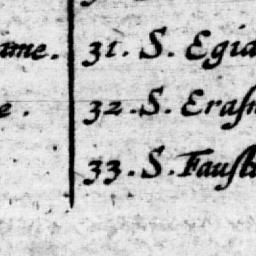 ame. 31. S. Egid
e. 32. S. Eraſm
33. S. Fauſt